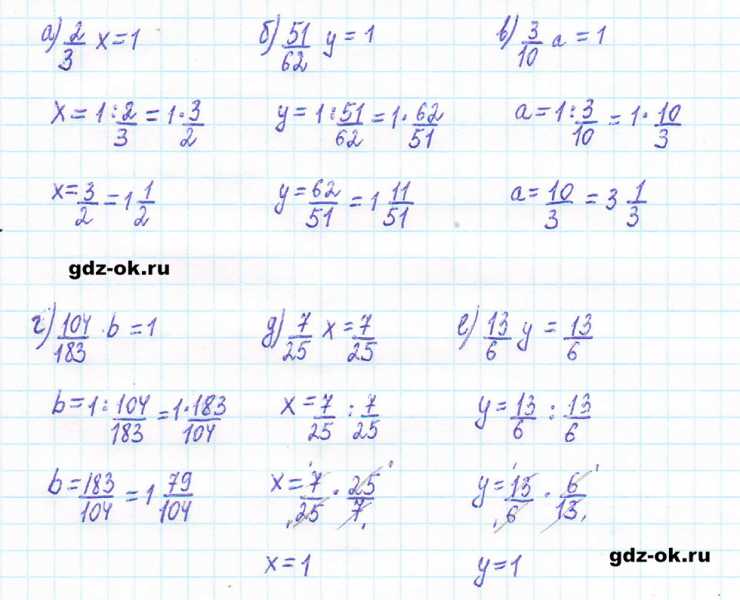 а) 2/3 x = 1
x = 1 : 2/3 = 1 · 3/2
x = 3/2 = 1 1/2
б) 51/62 y = 1
y = 1 : 51/62 = 1 · 62/51
y = 62/51 = 1 11/51
в) 3/10 a = 1
a = 1 : 3/10 = 1 · 10/3
a = 10/3 = 3 1/3
gdz-ok.ru
г) 104/183 · b = 1
b = 1 : 104/183 = 1 · 183/104
b = 183/104 = 1 79/104
д) 7/25 x = 7/25
x = 7/25 : 7/25
x = 7/25 · 25/7
x = 1
е) 13/6 y = 13/6
y = 13/6 : 13/6
y = 13/6 · 6/13
y = 1
gdz-ok.ru